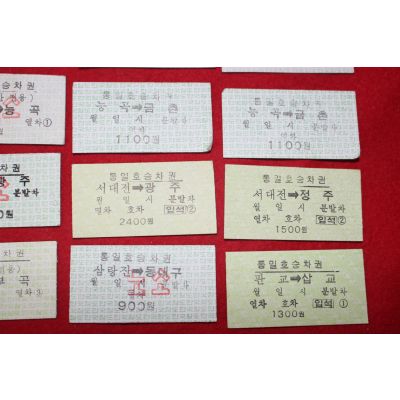 호승차권
용)
➡능 곡
열차①
통일호승차권
능 곡➡금 촌
월 일 시 분발차
열차
1100원
통일호승차권
능 곡➡금 촌
월 일 시 분발차
열차
1100원
호승차권
광 주
분발차
0원
통일호승차권
서대전➡광 주
월 일 시 분발차
열차 호차 입석②
2400원
통일호승차권
서대전➡정 주
월 일 시 분발차
열차 호차 입석②
1500원
호승차권
용)
곡
열차③
통일호승차권
삼랑진➡동대구
월 일 시 분발차
열차
900원
소
통일호승차권
판 교➡삽 교
월 일 시 분발차
열차 호차 입석①
1300원